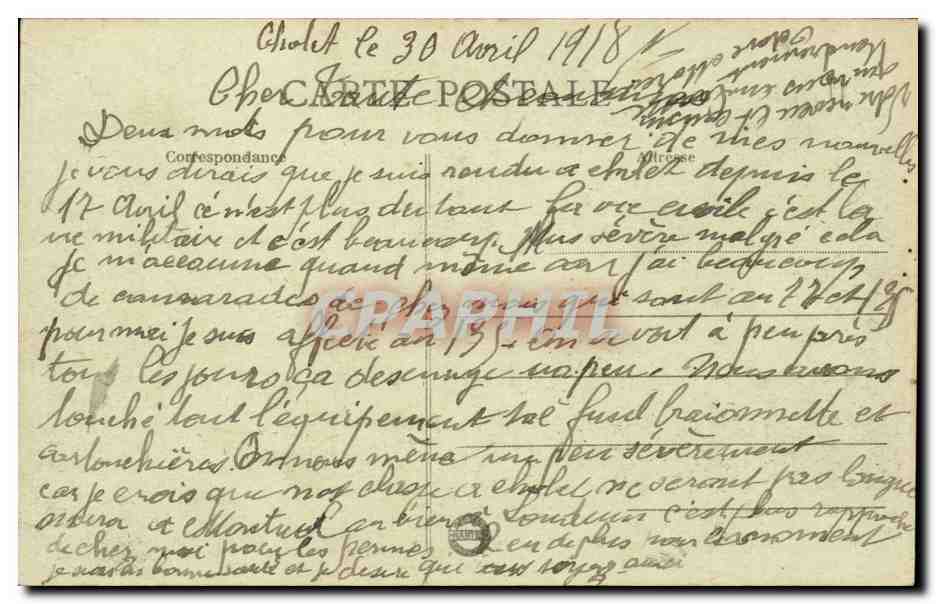 Cholet le 30 Avril 1918
CARTE POSTALE
Cher Tante
Votre neveu et cousin
qui vous embrasse
tendrement
Deux mots pour vous donner de mes nouvelles.
Correspondance
Adresse
je vous dirais que je suis rendu a cholet depuis le
17 Avril ce n'est plus du tout la vie civile c'est la
vie militaire et c'est beaucoup plus sévère malgré cela
je m'accoume quand même car j'ai beaucoup
de camarades de chez moi qui sont au 77 et 135
CPAPHIL
pour moi je suis affecté au 135 on se voit à peu près
tou les jours ça desennuye un peu. Nous avons
touché tout l'équipement tel fusil baionnette et
cartouchières. On nous mène un peu sévèrement
car je crois que not classe a cholet ne seront pas longue
a Montreuil ou bien a Loudun c'est plus rapproché
de chez moi pour les permes en depuis pour le moment
je suis en bonne santé et je desire que vous soyez
NANTES